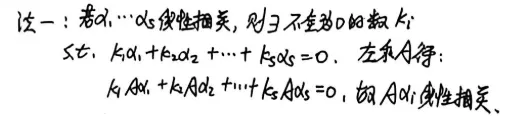 法一：若α₁⋯αs线性相关，则∃不全为0的数 kᵢ
s.t. k₁α₁+k₂α₂+⋯+ksαs=0. 左乘A得：
k₁Aα₁+k₂Aα₂+⋯+ksAαs=0，故Aαᵢ线性相关、